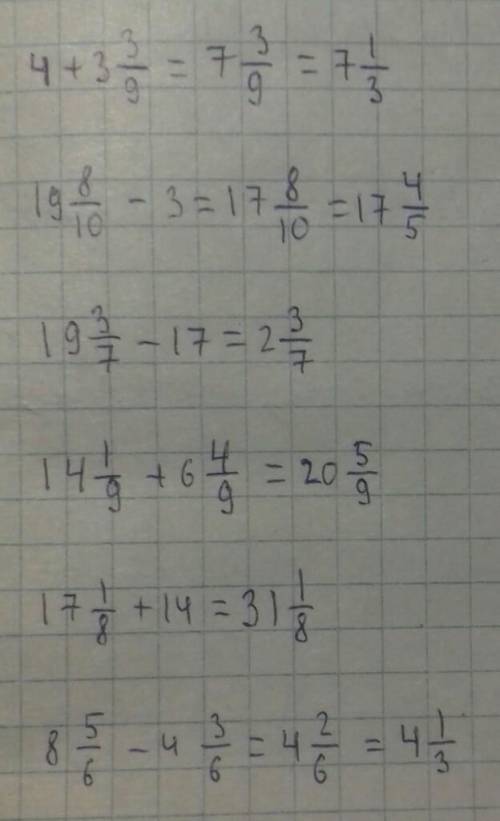 4 + 3 3/9 = 7 3/9 = 7 1/3
19 8/10 - 3 = 17 8/10 = 17 4/5
19 3/7 - 17 = 2 3/7
14 1/9 + 6 4/9 = 20 5/9
17 1/8 + 14 = 31 1/8
8 5/6 - 4 3/6 = 4 2/6 = 4 1/3